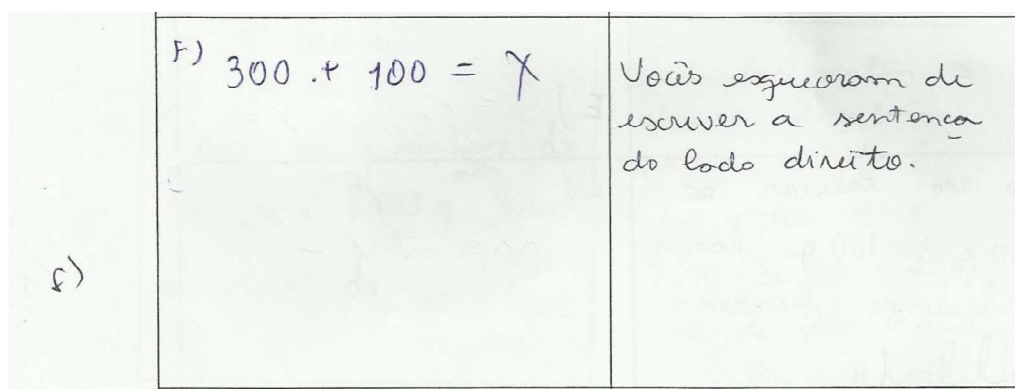 F) 300 + 100 = X
Vocês esqueceram de
escrever a sentença
do lado direito.
f)